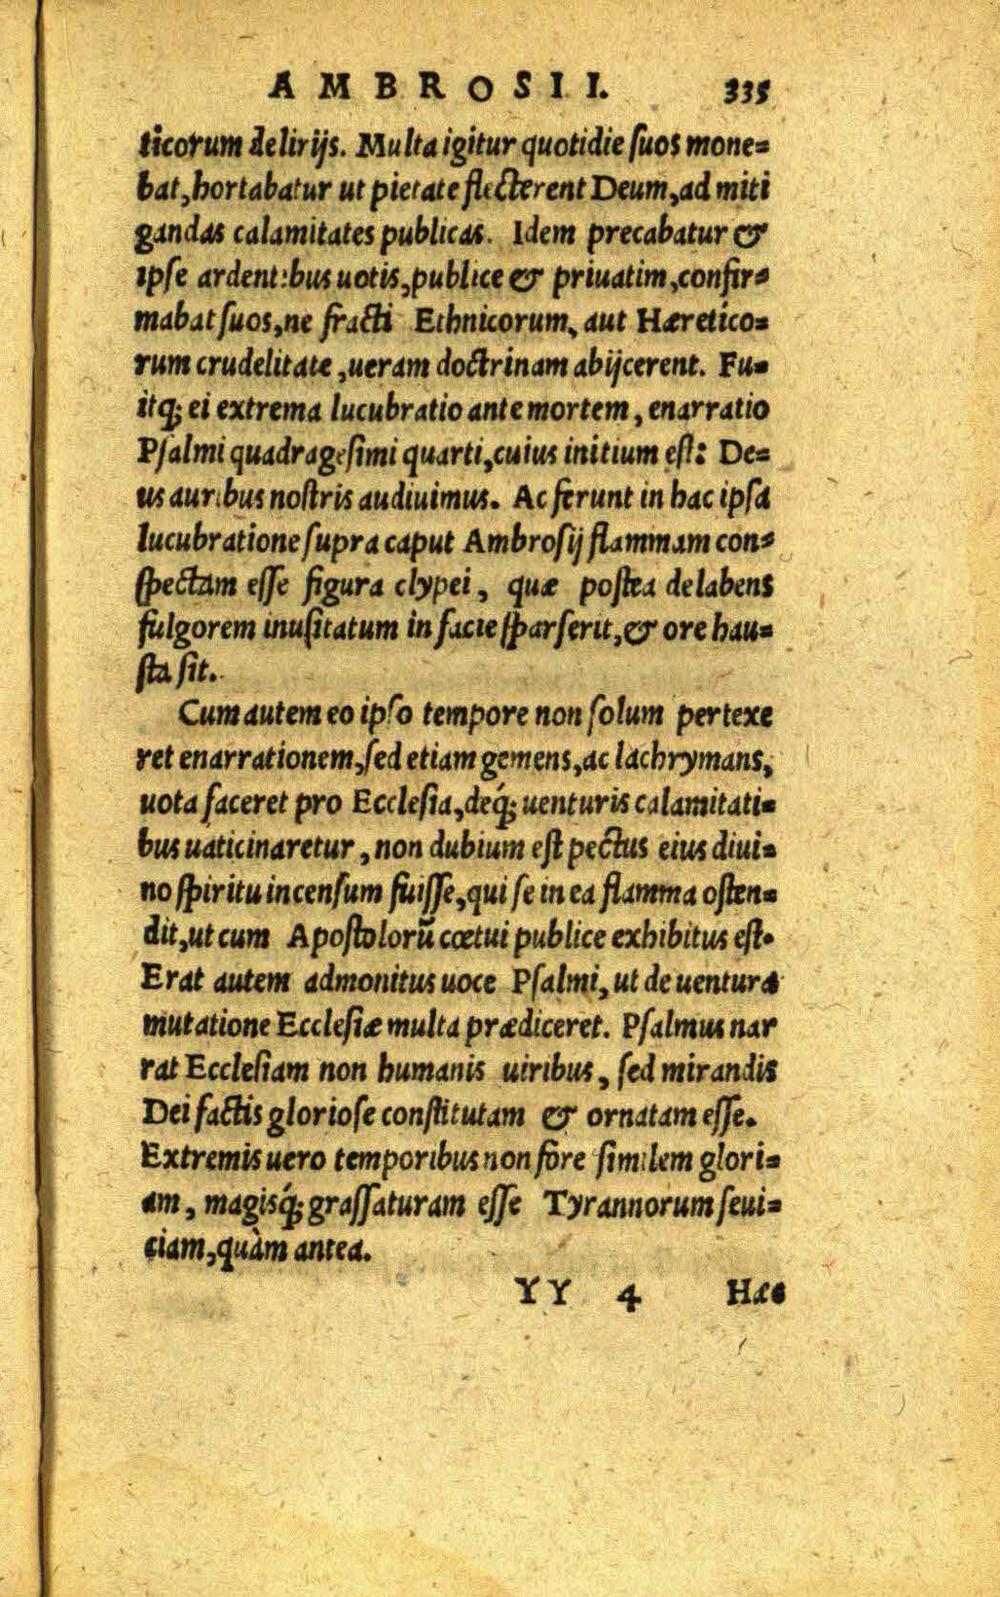 AMBROSII. 335
ticorum delirijs. Multa igitur quotidie ſuos mone=
bat, hortabatur ut pietate flecterent Deum, ad miti
gandas calamitates publicas. Idem precabatur &
ipſe ardentibus uotis, publice & priuatim, confir=
mabat ſuos, ne fracti Ethnicorum, aut Hæretico=
rum crudelitate, ueram doctrinam abijcerent. Fu=
itq́; ei extrema lucubratio ante mortem, enarratio
Pſalmi quadrageſimi quarti, cuius initium eſt: De=
us auribus noſtris audiuimus. Ac ferunt in hac ipſa
lucubratione ſupra caput Ambroſij flammam con=
ſpectam eſſe figura clypei, quæ poſtea delabens
fulgorem inuſitatum in facie ſparſerit, & ore hau=
ſta ſit.
Cum autem eo ipſo tempore non ſolum pertexe
ret enarrationem, ſed etiam gemens, ac lachrymans,
uota faceret pro Eccleſia, deq́; uenturis calamitati=
bus uaticinaretur, non dubium eſt pectus eius diui=
no ſpiritu incenſum fuiſſe, qui ſe in ea flamma oſten=
dit, ut cum Apoſtolorũ cœtui publice exhibitus eſt.
Erat autem admonitus uoce Pſalmi, ut de uentura
mutatione Eccleſiæ multa prædiceret. Pſalmus nar
rat Eccleſiam non humanis uiribus, ſed mirandis
Dei factis glorioſe conſtitutam & ornatam eſſe.
Extremis uero temporibus non fore ſimilem glori=
am, magisq́; graſſaturam eſſe Tyrannorum ſeui=
ciam, quàm antea.
YY 4 Hæc